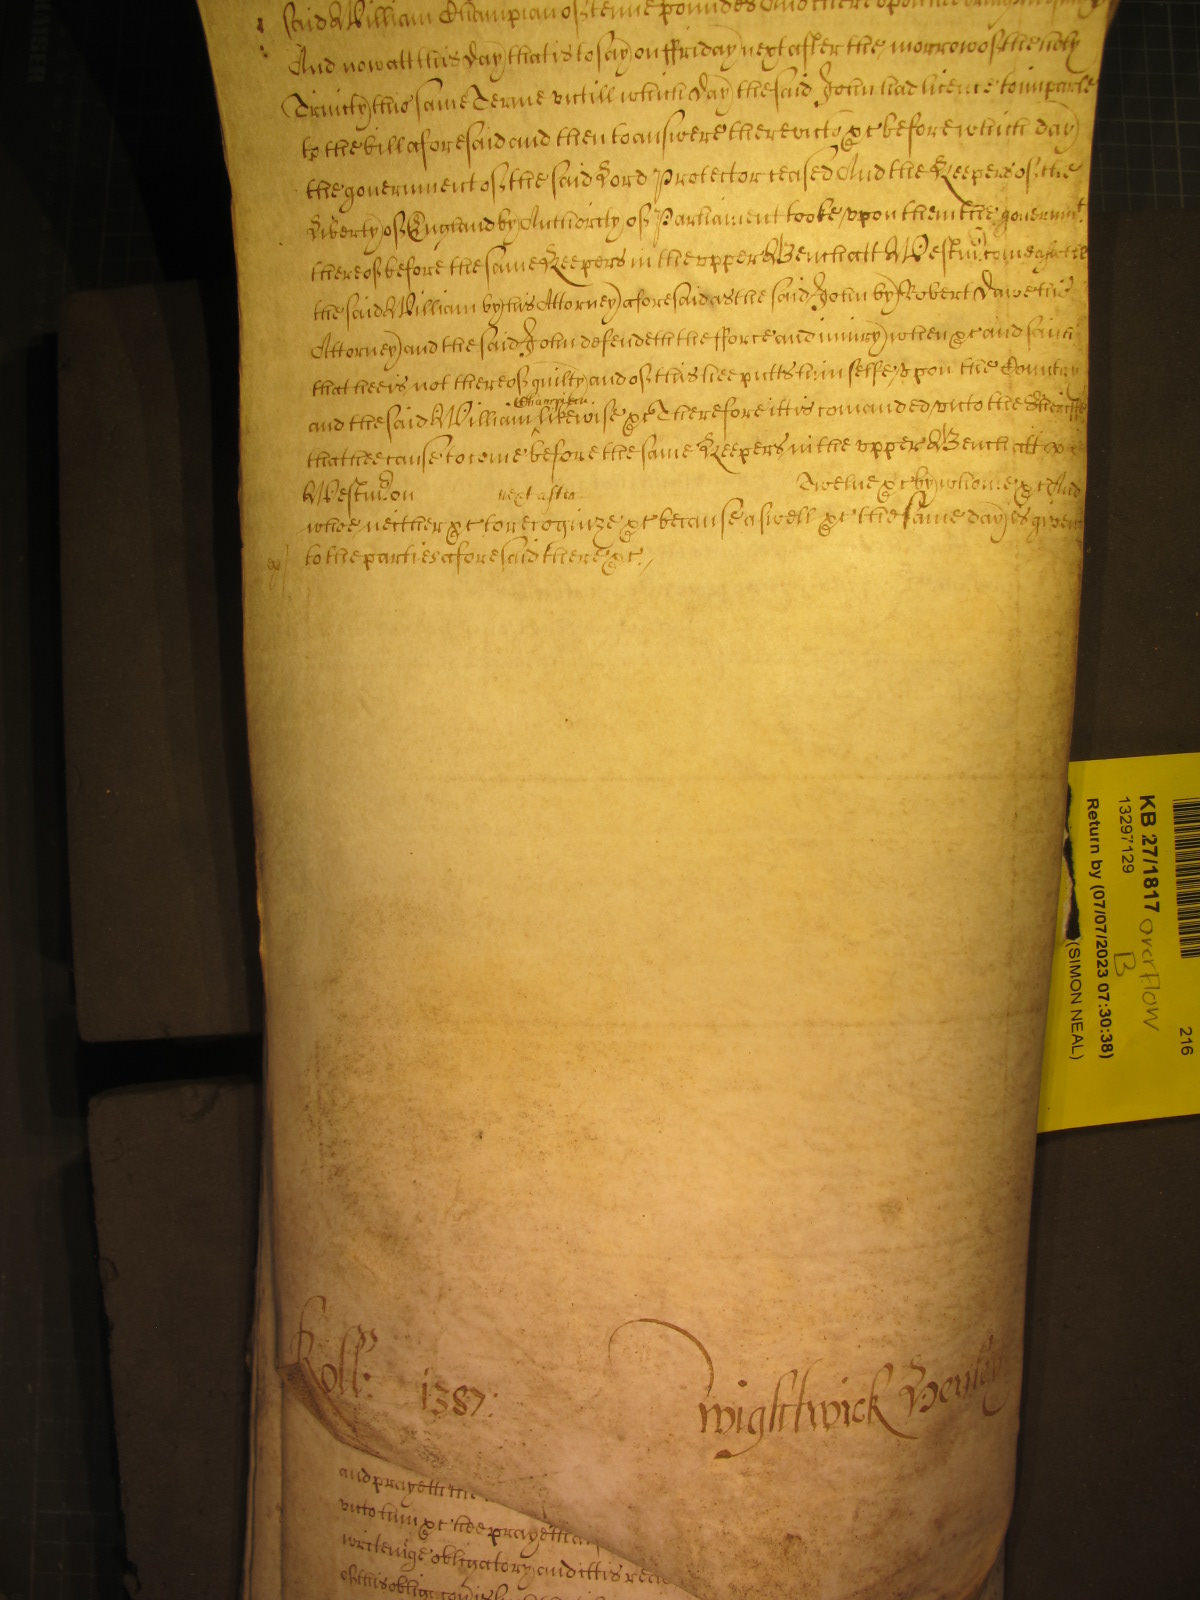 said William Champian of Tenne poundes And thereupon hee
And now att this day that is to say on ffriday next after the morrow of the holy
Trinity this same Terme untill which day the said John had licence to imparle
to the bill aforesaid and then to answere thereunto &c before which day
the government of the said Lord Protector ceased And the Keepers of the
Liberty of England by Authority of Parliament tooke upon them the governmt
thereof before the same Keepers in the upper Bench att Westm come aswell
the said William by his Attorney aforesaid as the said John by Robert Dawe his
Attorney and the said John defendeth the fforce and iniury when &c and saith
that hee is not thereof guilty and of this hee putts himselfe upon the Country
and the said William Champian likewise &c Therefore itt is comanded unto the Sheriffe
that hee cause to come before the same Keepers in the upper Bench att
Westm on next after Twelve &c by whome &c And
whoe neither &c to recognize &c because aswell &c the same day is given
to the parties aforesaid there &c.
Roll: 1387: Wightwick Henley
and prayeth
unto him &c hee prayeth
writeinge obligatory and itt is
of this
KB 27/1817 overflow
B
13297129
Return by (07/07/2023 07:30:38)
(SIMON NEAL)
216